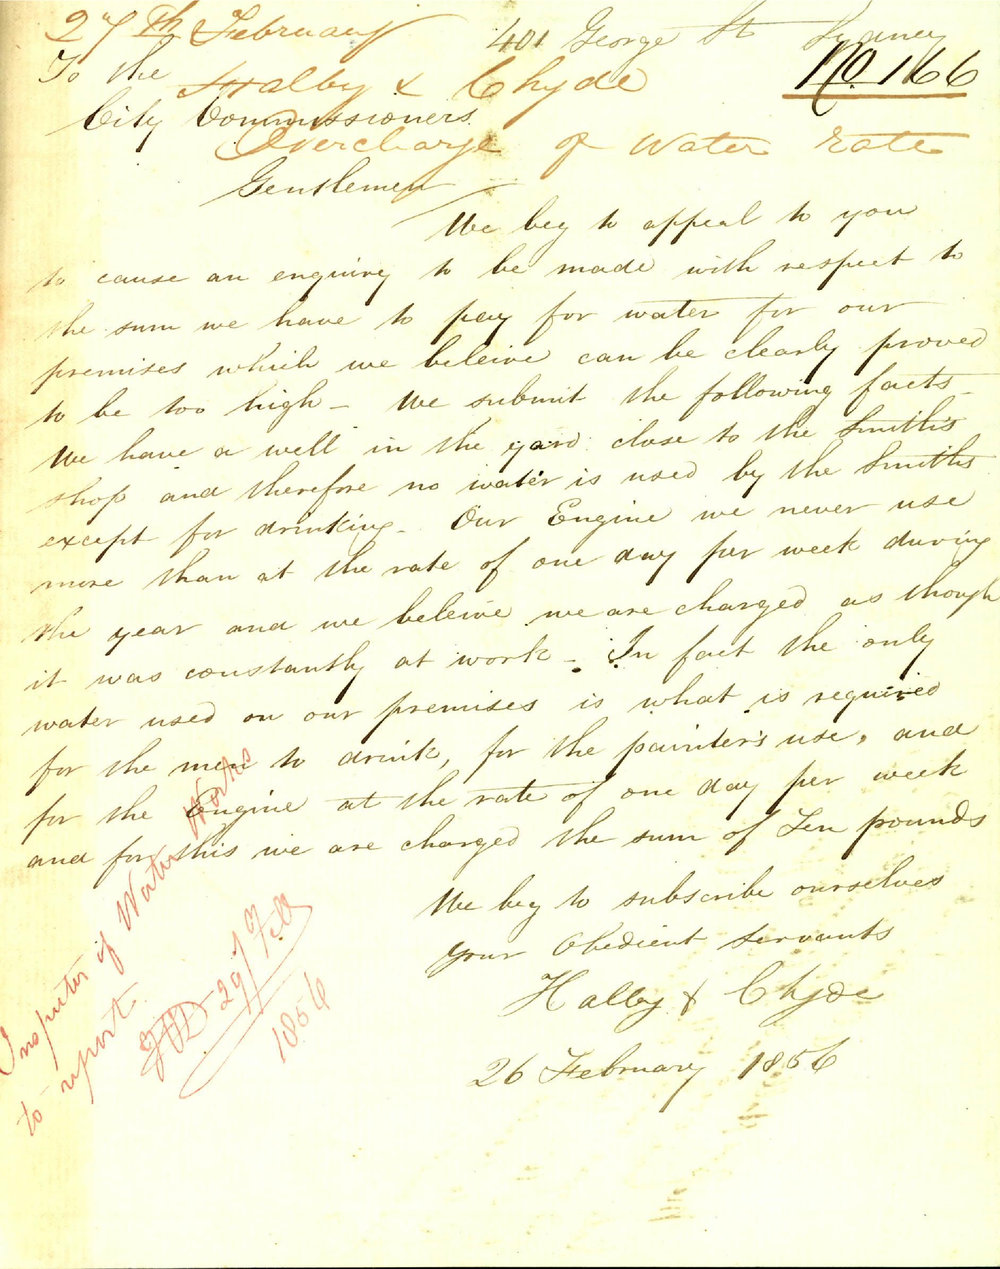 27th February
401 George St Sydney
To the
Halby & Chyde
No. 166
City Commissioners
Overcharge of Water Rate
Gentlemen
We beg to appeal to you
to cause an enquiry to be made with respect to
the sum we have to pay for water for our
premises which we beleive can be clearly proved
to be too high - We submit the following facts -
We have a well in the yard close to the Smith's
shop and therefore no water is used by the Smiths
except for drinking - Our Engine we never use
more than at the rate of one day per week during
the year and we beleive we are charged as though
it was constantly at work - In fact the only
water used on our premises is what is required
for the men to drink, for the painter's use, and
for the Engine at the rate of one day per week
and for this we are charged the sum of Ten pounds
We beg to subscribe ourselves
your Obedient Servants
Halby & Chyde
26 February 1856
Inspector of Water Works
to report
29/Feb
1856